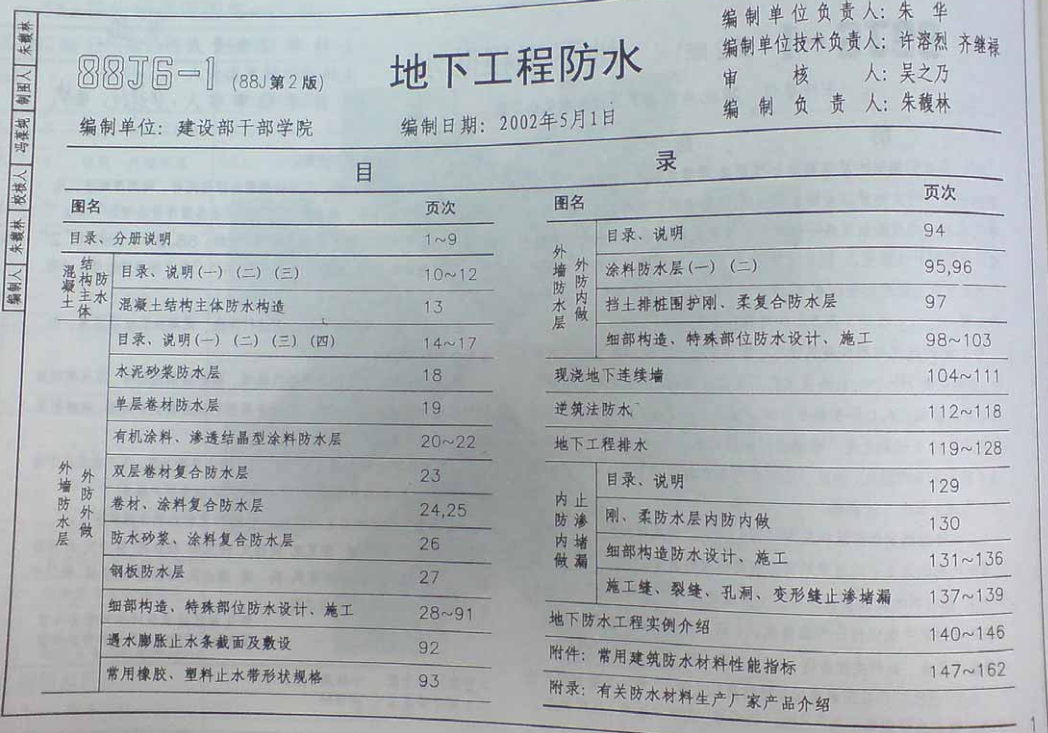 编制单位负责人: 朱 华
编制单位技术负责人: 许溶烈 齐继禄
审核人: 吴之乃
编制负责人: 朱馥林
88J6-1 (88J第2版)
地下工程防水
编制单位: 建设部干部学院
编制日期: 2002年5月1日
编制人 朱馥林 校核人 制图人 朱馥林
目 录
图名 页次
目录、分册说明 1~9
混凝土结构主体防水
目录、说明(一) (二) (三) 10~12
混凝土结构主体防水构造 13
外墙防水层
外防外做
目录、说明(一) (二) (三) (四) 14~17
水泥砂浆防水层 18
单层卷材防水层 19
有机涂料、渗透结晶型涂料防水层 20~22
双层卷材复合防水层 23
卷材、涂料复合防水层 24,25
防水砂浆、涂料复合防水层 26
钢板防水层 27
细部构造、特殊部位防水设计、施工 28~91
遇水膨胀止水条截面及敷设 92
常用橡胶、塑料止水带形状规格 93
图名 页次
外墙防水层
外防内做
目录、说明 94
涂料防水层(一) (二) 95,96
挡土排桩围护刚、柔复合防水层 97
细部构造、特殊部位防水设计、施工 98~103
现浇地下连续墙 104~111
逆筑法防水 112~118
地下工程排水 119~128
内防内做
止渗堵漏
目录、说明 129
刚、柔防水层内防内做 130
细部构造防水设计、施工 131~136
施工缝、裂缝、孔洞、变形缝止渗堵漏 137~139
地下防水工程实例介绍 140~146
附件: 常用建筑防水材料性能指标 147~162
附录: 有关防水材料生产厂家产品介绍
1